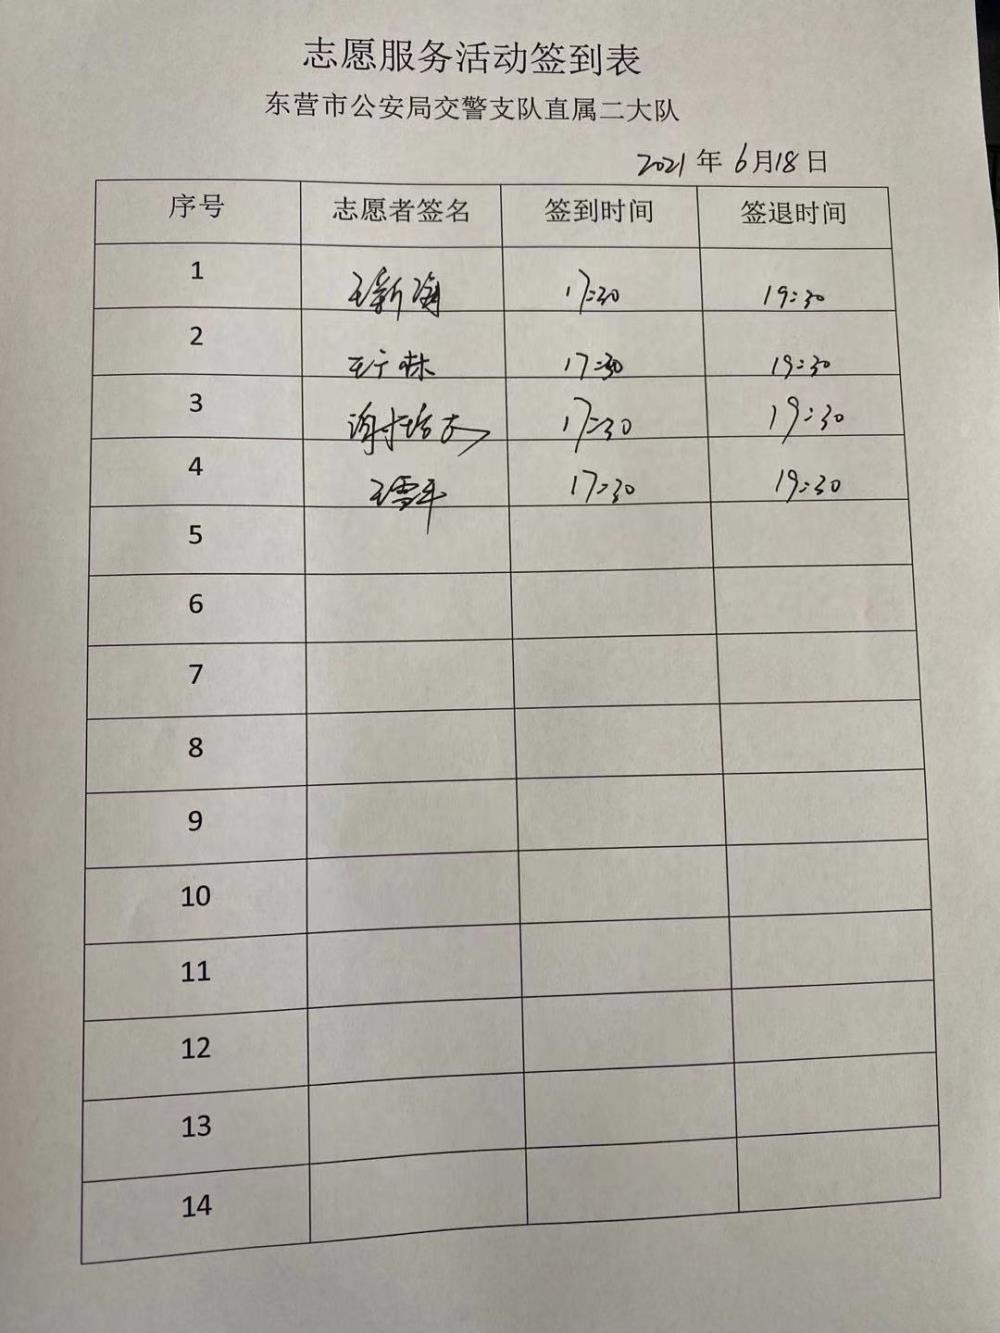 志愿服务活动签到表
东营市公安局交警支队直属二大队
2021年6月18日
序号 志愿者签名 签到时间 签退时间
1 王新海 17:30 19:30
2 王广林 17:30 19:30
3 谢 17:30 19:30
4 王雪平 17:30 19:30
5
6
7
8
9
10
11
12
13
14